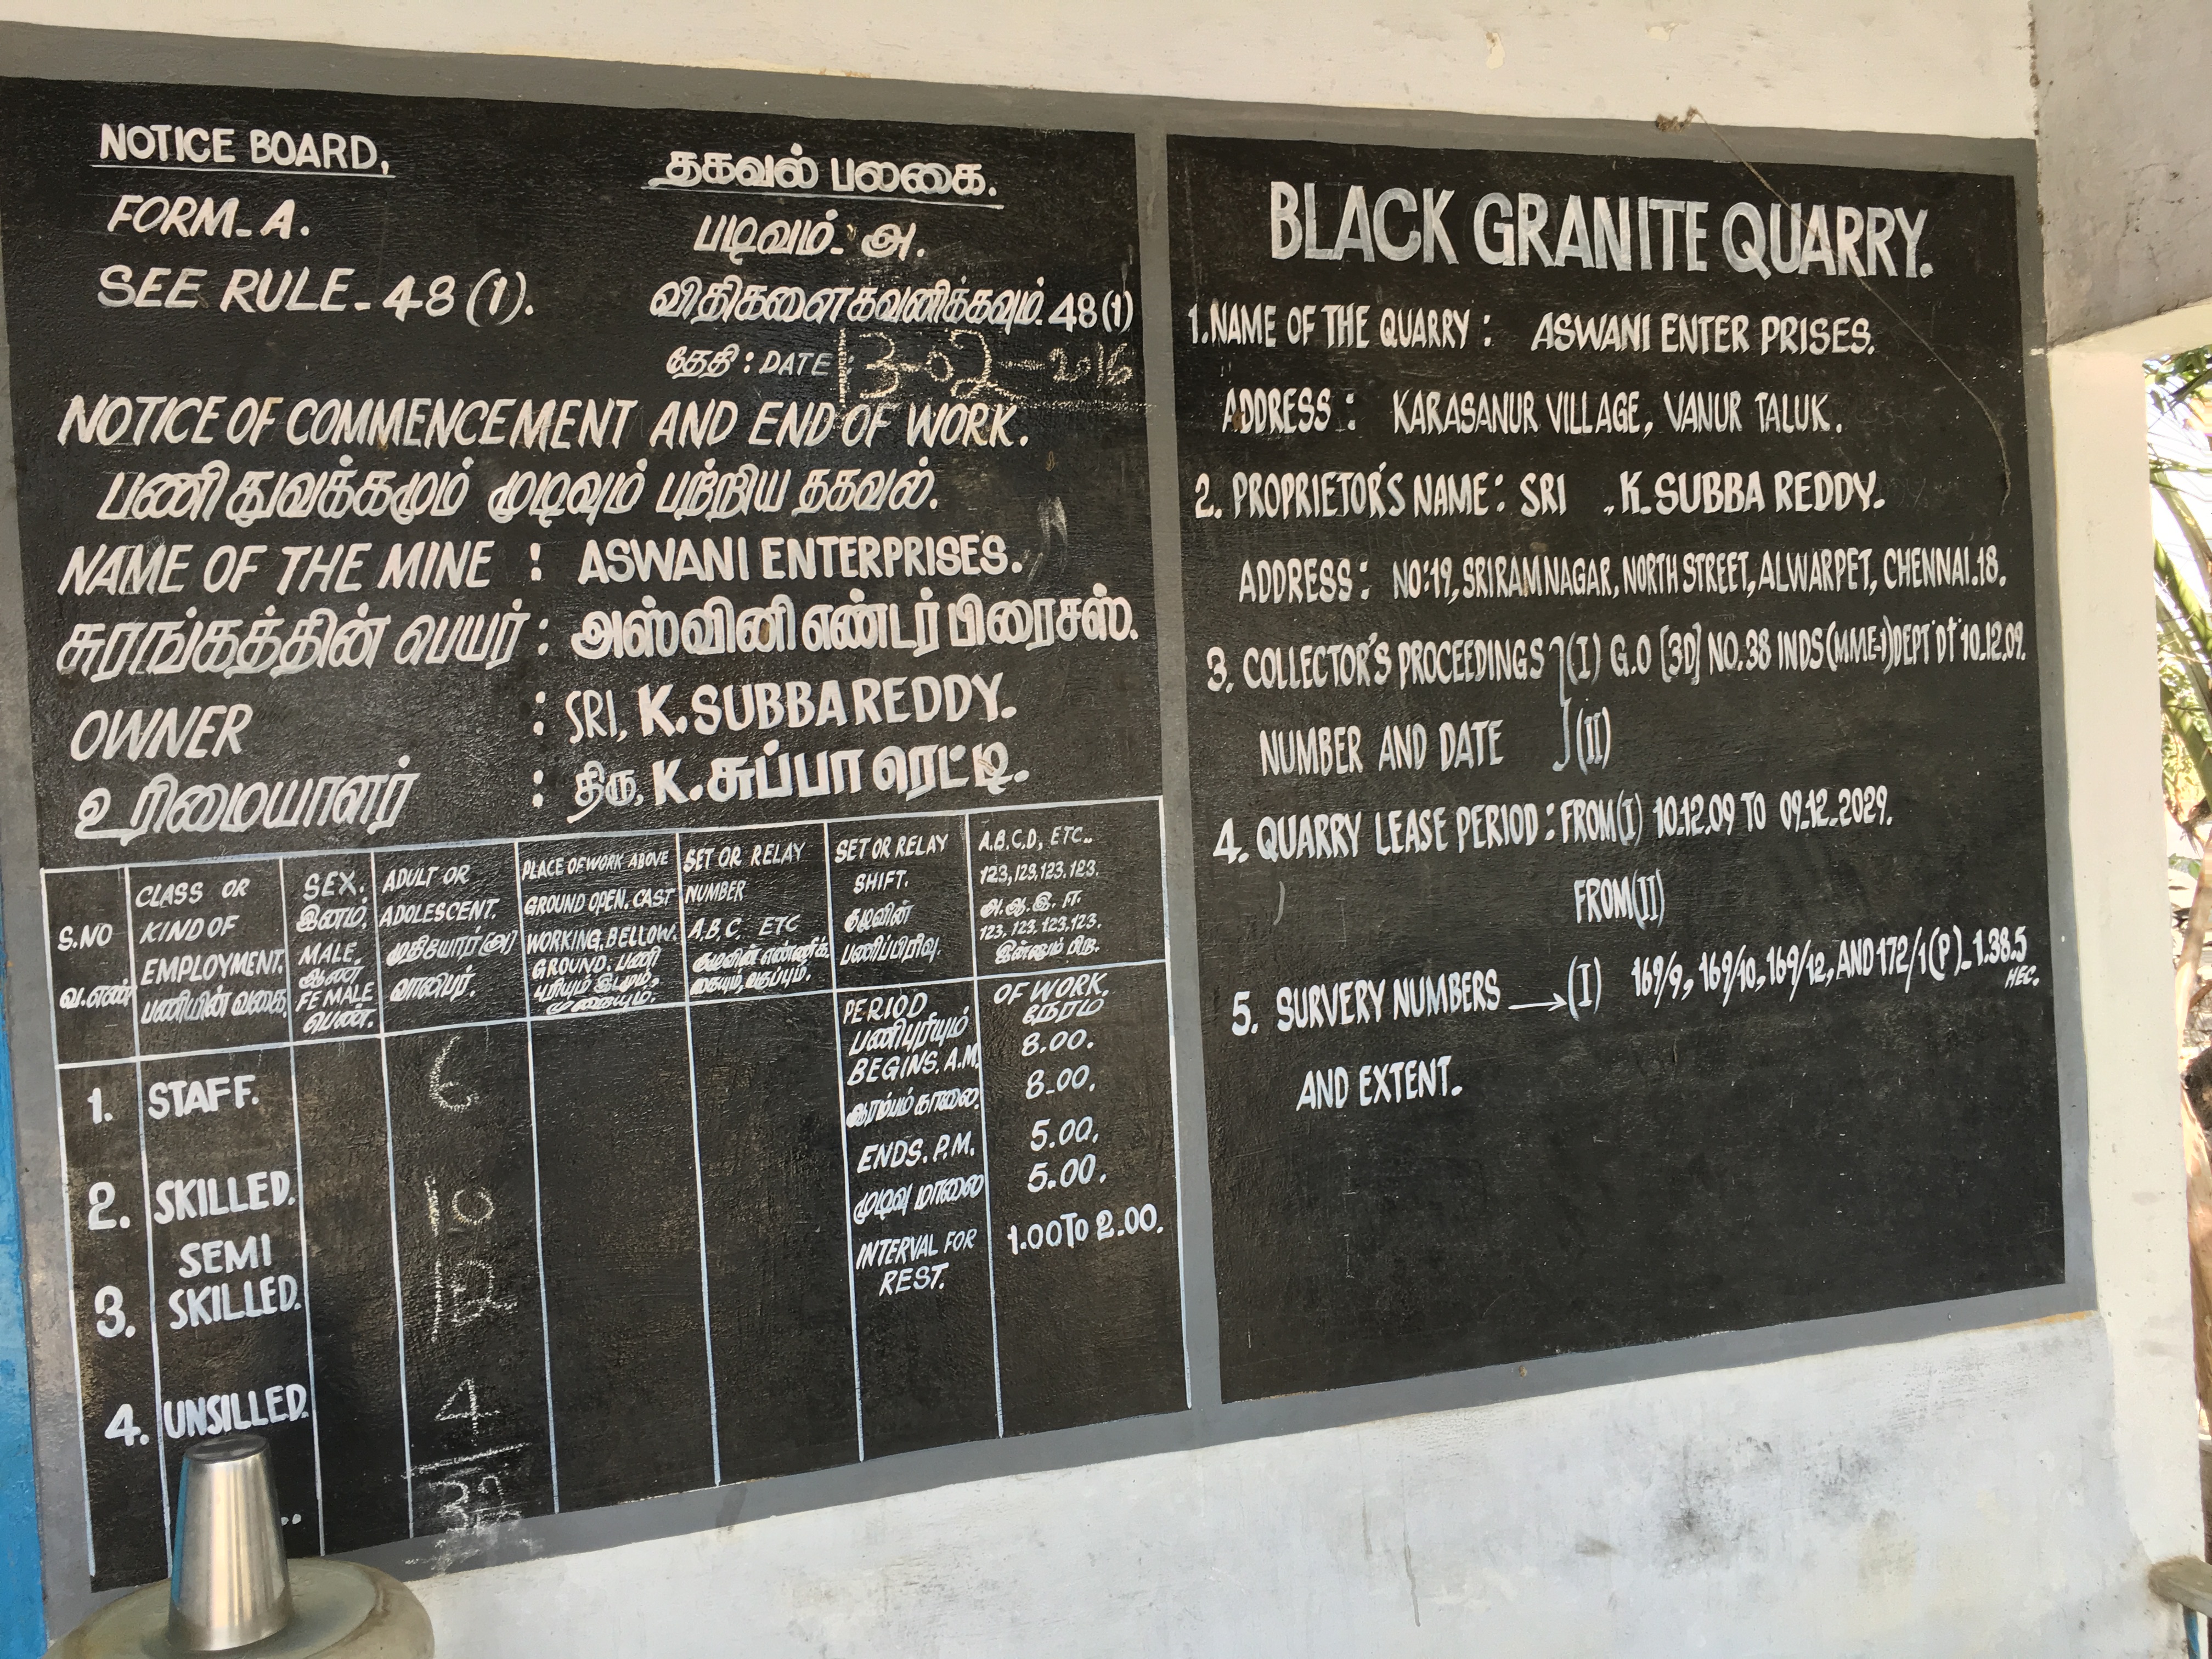 NOTICE BOARD,
தகவல் பலகை.
FORM-A.
படிவம்- அ.
SEE RULE-48(1).
விதிகளைகவனிக்கவும். 48(1)
தேதி : DATE : 13-02-2016
NOTICE OF COMMENCEMENT AND END OF WORK.
பணி துவக்கமும் முடிவும் பற்றிய தகவல்.
NAME OF THE MINE : ASWANI ENTERPRISES.
சுரங்கத்தின் பெயர் : அஸ்வினி எண்டர் பிரைசஸ்.
OWNER : SRI, K.SUBBAREDDY.
உரிமையாளர் : திரு, K.சுப்பா ரெட்டி.
S.NO
வ.எண்
CLASS OR
KIND OF
EMPLOYMENT.
பணியின் வகை
SEX.
இனம்.
MALE.
ஆண்
FEMALE
பெண்.
ADULT OR
ADOLESCENT.
முதியோர் (அ)
வாலிபர்.
PLACE OF WORK ABOVE
GROUND OPEN. CAST
WORKING, BELLOW.
GROUND. பணி
புரியும் இடமும்,
முறையும்.
SET OR RELAY
NUMBER
A.B.C. ETC
குழுவின் எண்ணிக்
கையும், வகுப்பும்.
SET OR RELAY
SHIFT.
குழுவின்
பணிப்பிரிவு.
A.B.C.D, ETC..
123, 123, 123. 123.
அ. ஆ. இ. ஈ.
123, 123, 123, 123.
இன்னும் பிற.
PERIOD OF WORK.
பணிபுரியும் நேரம்
BEGINS. A.M. 8.00.
ஆரம்பம் காலை. 8-00.
ENDS. P.M. 5.00.
முடிவு மாலை 5.00.
INTERVAL FOR 1.00 To 2.00.
REST.
1. STAFF. 6
2. SKILLED. 10
3. SEMI
SKILLED. 12
4. UNSILLED. 4
32
BLACK GRANITE QUARRY.
1.NAME OF THE QUARRY : ASWANI ENTER PRISES.
ADDRESS : KARASANUR VILLAGE, VANUR TALUK.
2. PROPRIETOR'S NAME : SRI .K.SUBBA REDDY.
ADDRESS : NO:19, SRIRAM NAGAR, NORTH STREET, ALWARPET, CHENNAI.18.
3. COLLECTOR'S PROCEEDINGS (I) G.O [3D] NO.38 INDS (MME-1) DEPT DT 10.12.09.
NUMBER AND DATE (II)
4. QUARRY LEASE PERIOD : FROM(I) 10.12.09 TO 09.12.2029.
FROM(II)
5. SURVERY NUMBERS → (I) 169/9, 169/10, 169/12, AND 172/1(P)-1.38.5
HEC.
AND EXTENT.